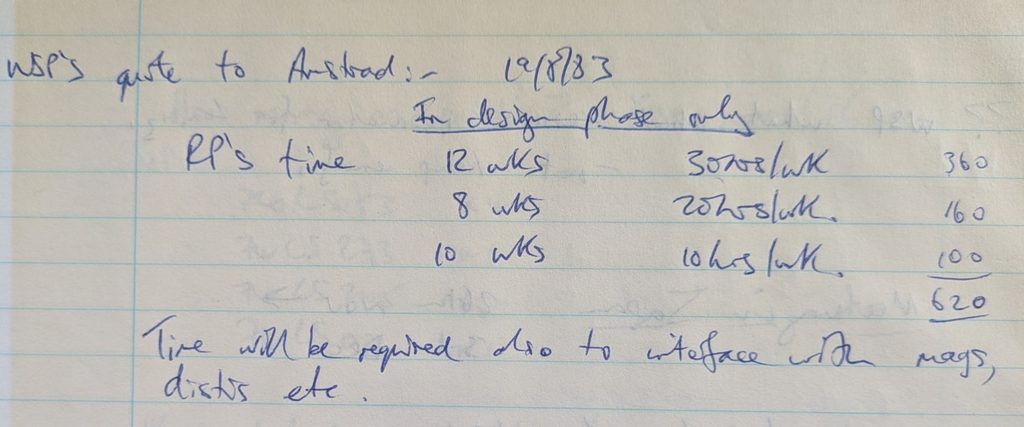 WSP's quote to Amstrad:- 19/8/83
In design phase only
RP's time 12 wks 30hrs/wk 360
8 wks 20hrs/wk. 160
10 wks 10hrs/wk. 100
620
Time will be required also to interface with mags,
distis etc.